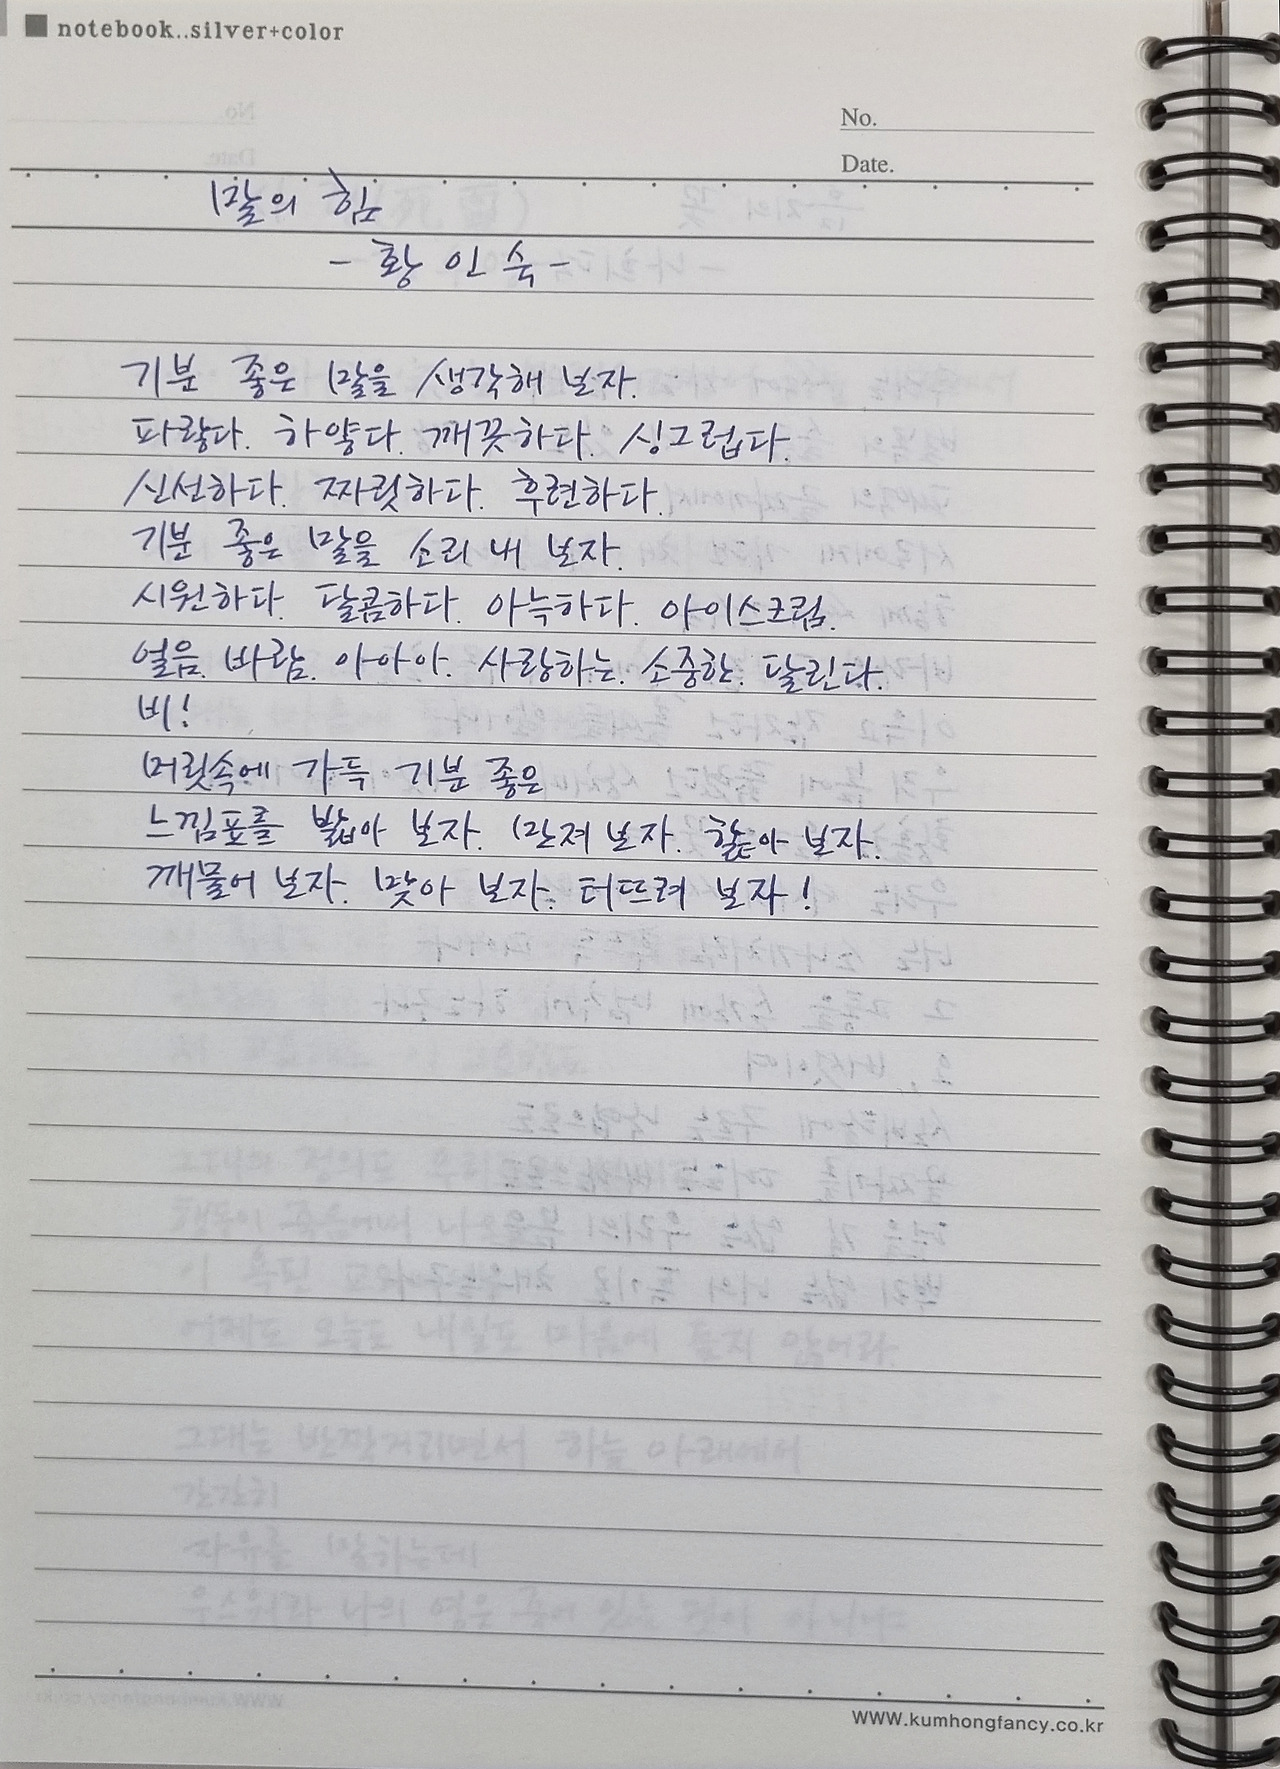 notebook..silver+color
No.
Date.
말의 힘
- 황인숙 -
기분 좋은 말을 생각해 보자.
파랗다. 하얗다. 깨끗하다. 싱그럽다.
신선하다. 짜릿하다. 후련하다.
기분 좋은 말을 소리 내 보자.
시원하다. 달콤하다. 아늑하다. 아이스크림.
얼음. 바람. 아아아. 사랑하는. 소중한. 달린다.
비!
머릿속에 가득 기분 좋은
느낌표를 밟아 보자. 만져 보자. 핥아 보자.
깨물어 보자. 맞아 보자. 터뜨려 보자!
www.kumhongfancy.co.kr